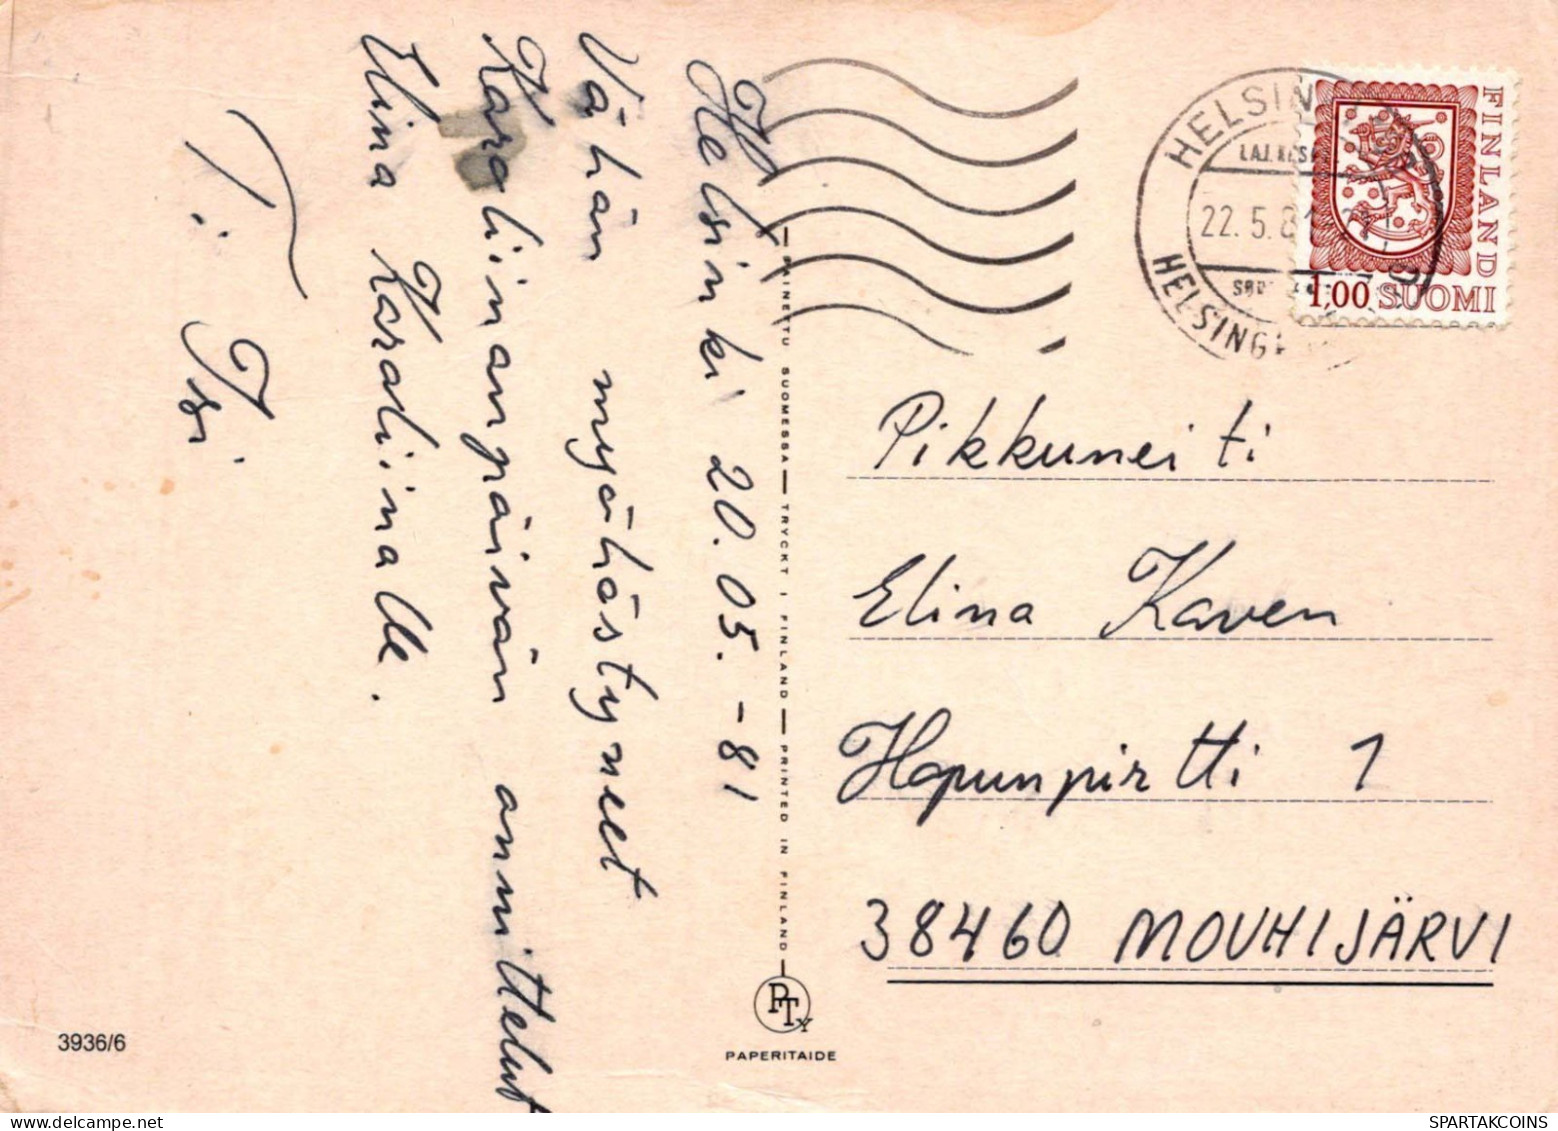 Helsinki 20.05.-81
Vähän myöhästyneet
Karoliinanpäivän onnittelut
Elina Karoliinalle.
T:
PAINETTU SUOMESSA — TRYCKT I FINLAND — PRINTED IN FINLAND
PTY
PAPERITAIDE
3936/6
22.5.81
FINLAND
1,00 SUOMI
Pikkuneiti
Elina Kaven
Hopunpirtti 1
38460 MOUHIJÄRVI
SPARTAKCOINS